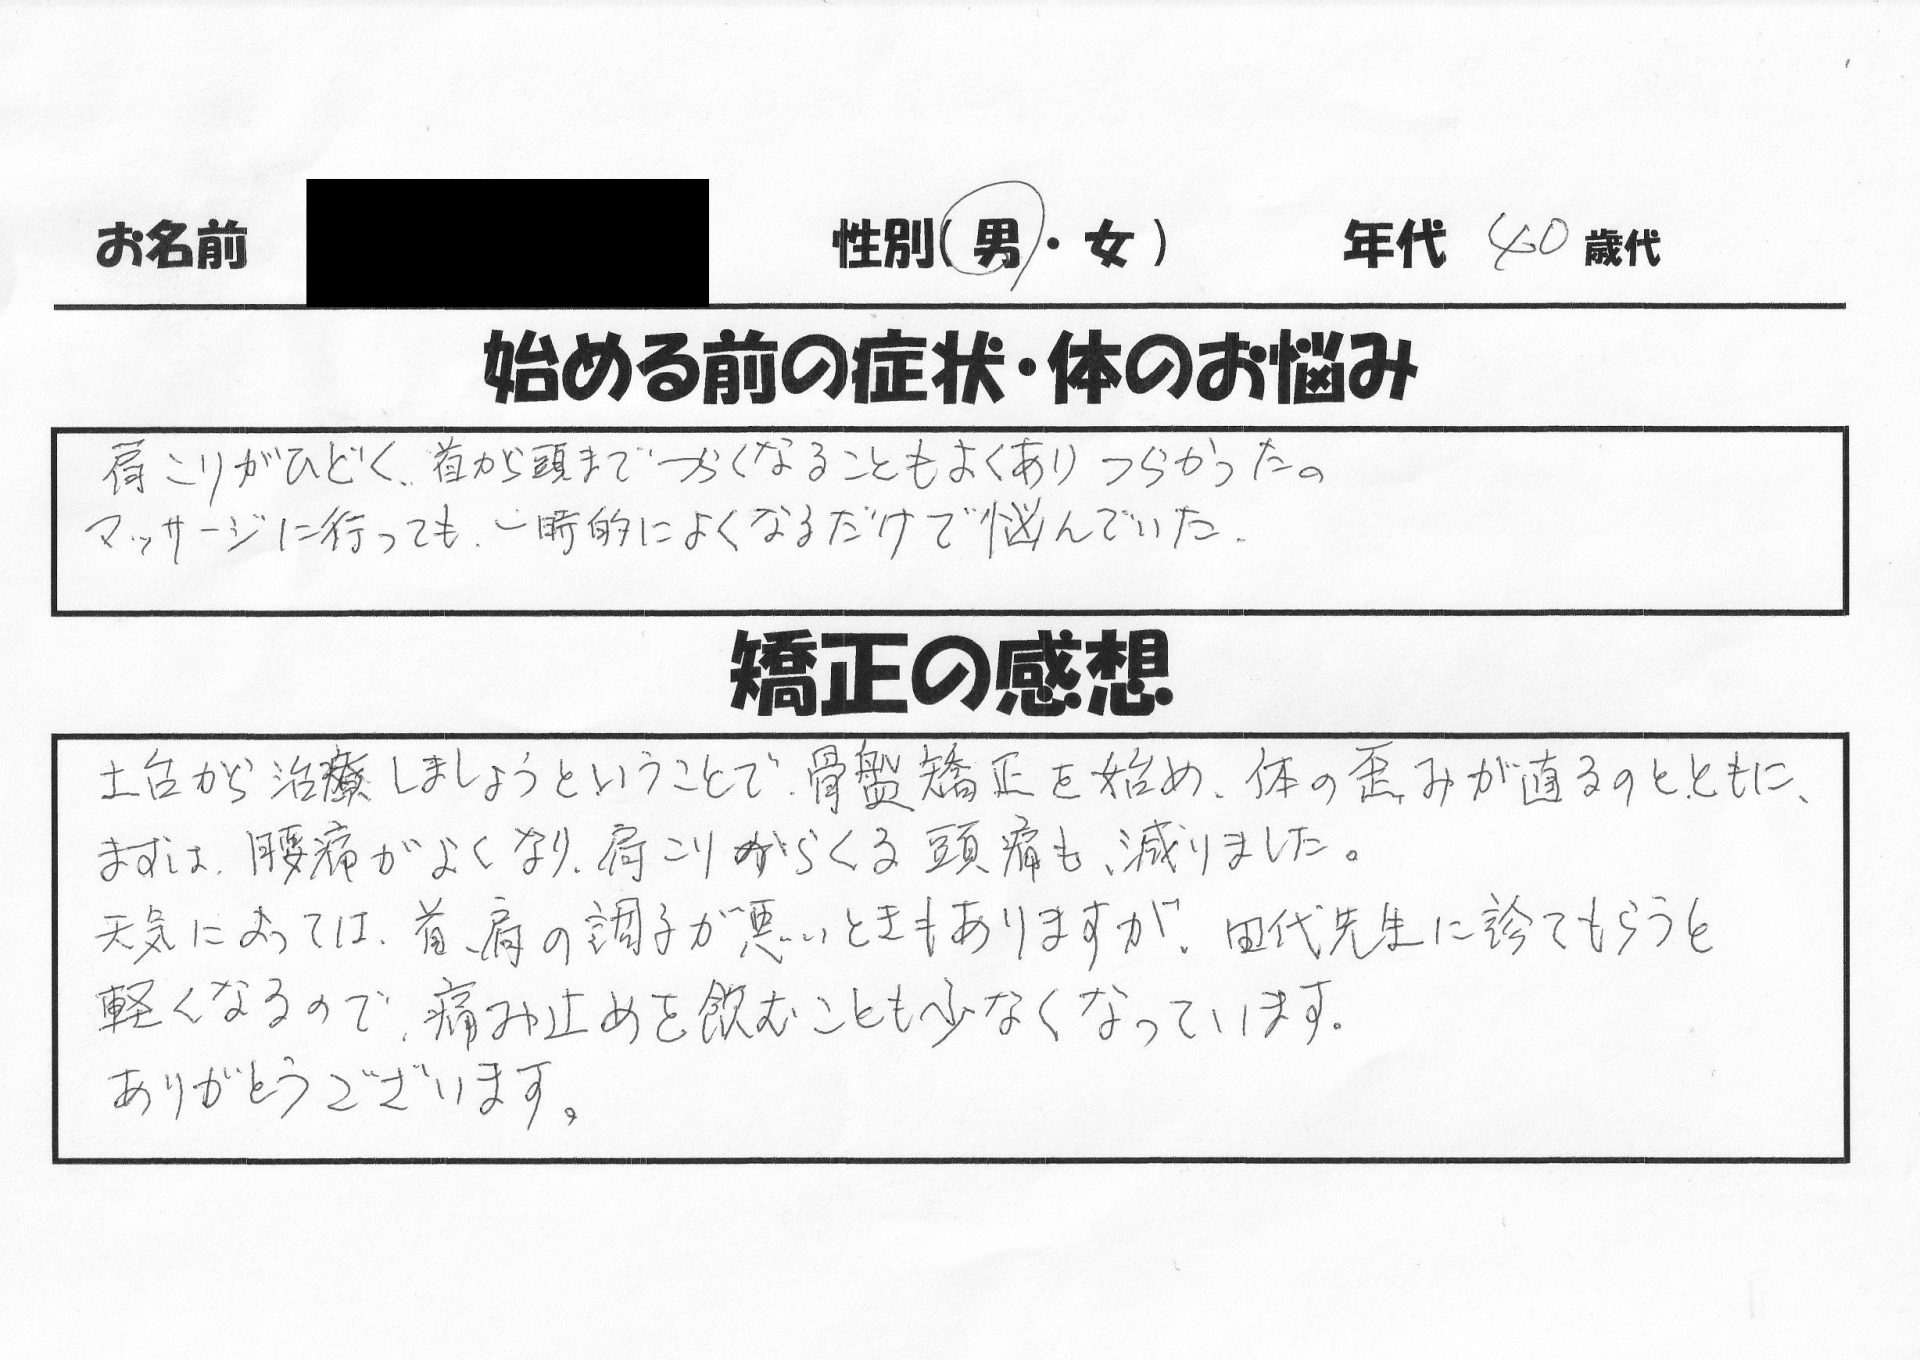 お名前 性別(男・女) 年代 40歳代
始める前の症状・体のお悩み
肩こりがひどく、首から頭までつらくなることもよくありつらかった。
マッサージに行っても、一時的によくなるだけで悩んでいた。
矯正の感想
土台から治療しましょうということで、骨盤矯正を始め、体の歪みが直るのとともに、
まずは、腰痛がよくなり、肩こりからくる頭痛も、減りました。
天気によっては、首、肩の調子が悪いときもありますが、田代先生に診てもらうと
軽くなるので、痛み止めを飲むことも少なくなっています。
ありがとうございます。